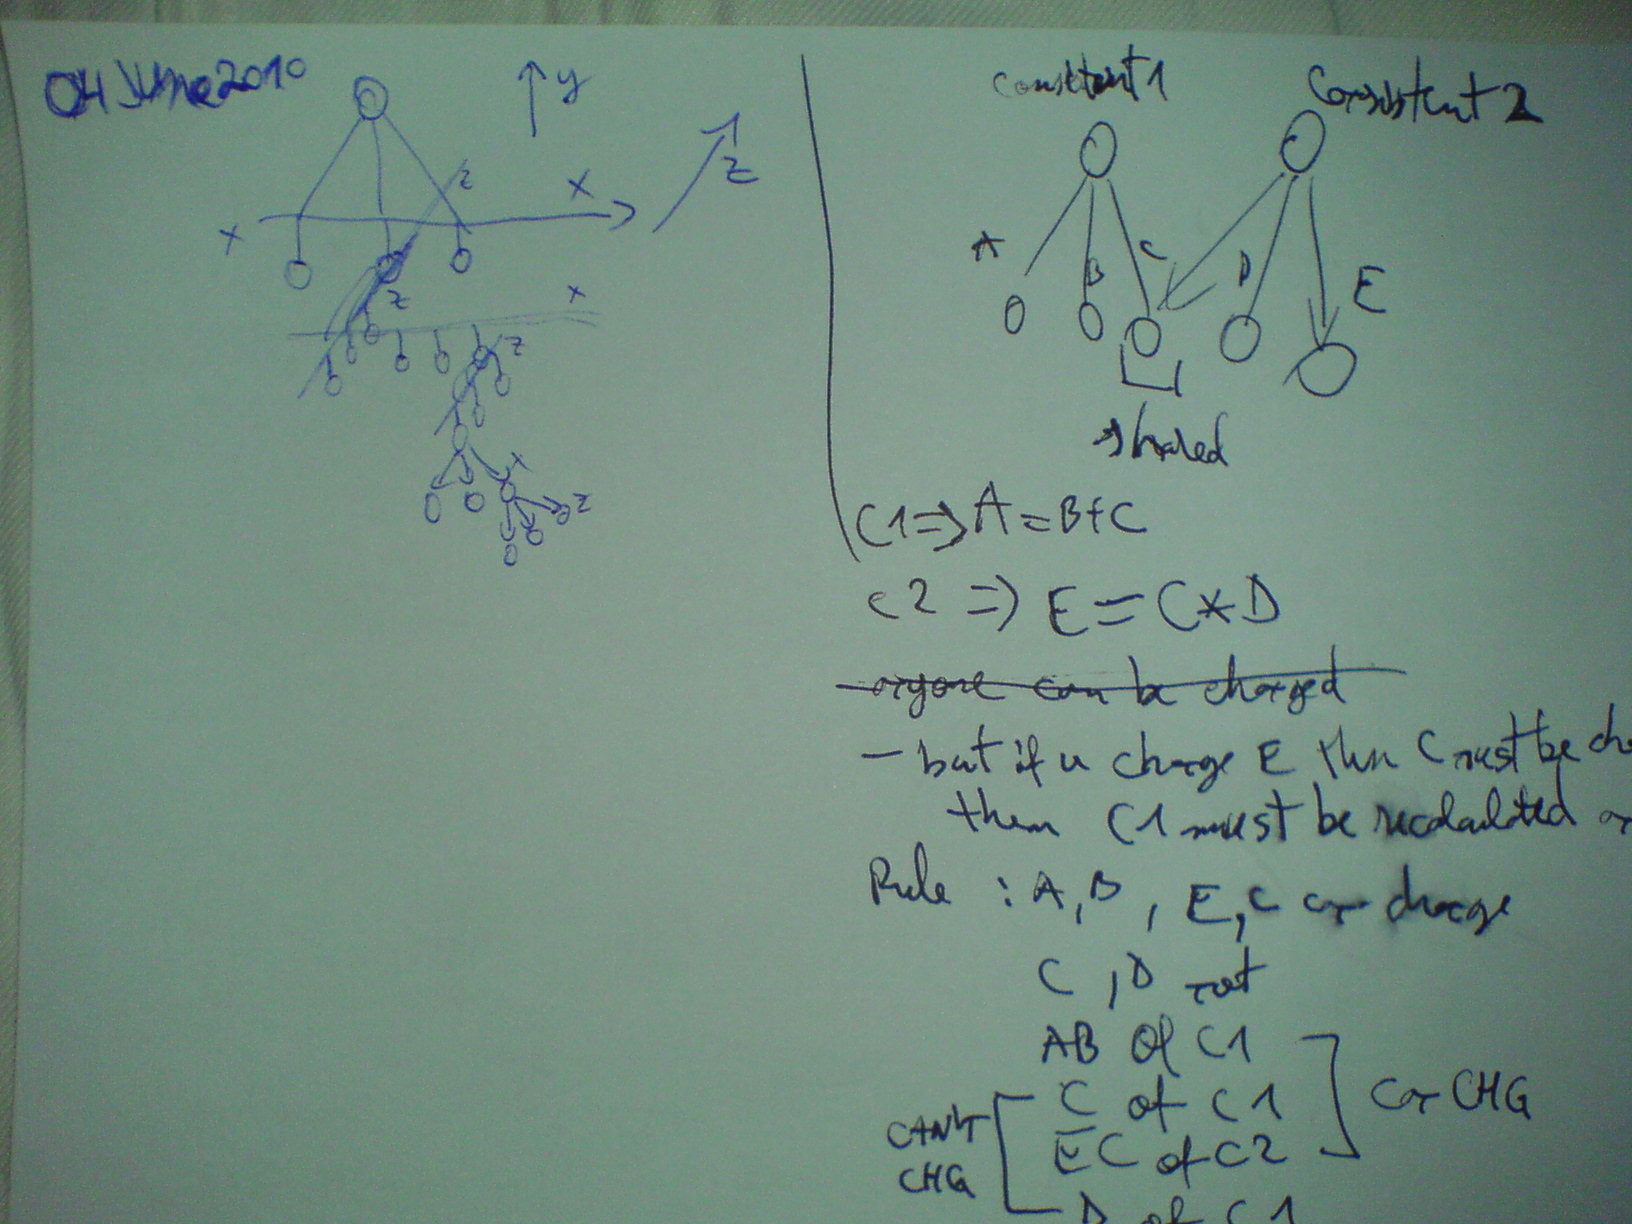 04 June 2010
y
z
x
z
x
x
z
z
x
z
Consistent 1
Consistent 2
A
B
C
D
E
shared
C1 => A = B + C
C2 => E = C * D
- anyone can be changed
- but if u change E then C must be ch
then C1 must be recalculated
Rule : A, B, E, C can change
C, D not
AB of C1
C of C1
EC of C2
Can CHG
CAN'T
CHG
D of C1